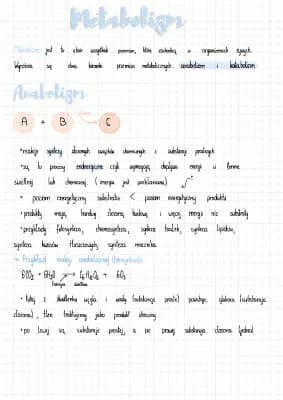 Metabolizm
Metabolizm jest to zbiór wszystkich przemian, które zachodzą w organizmach żywych.
Wyróżnia się dwa kierunki przemian metabolicznych: anabolizm i katabolizm
Anabolizm
A + B → C
• reakcje syntezy złożonych związków chemicznych z substancji prostych
• są to procesy endoergiczne czyli wymagają dopływu energii w formie
świetlnej lub chemicznej. (energia jest pochłaniana)
• poziom energetyczny substratów < poziom energetyczny produktu
• produkty mają bardziej złożoną budowę i więcej energii niż substraty
• przykłady: fotosynteza, chemosynteza, synteza białek, synteza lipidów,
synteza kwasów tłuszczowych, synteza mocznika
Przykład reakcji anabolicznej (fotosynteza)
6CO₂ + 6H₂O → C₆H₁₂O₆ + 6O₂
energia świetlna
• tutaj z dwutlenku węgla i wody (substancje proste) powstaje glukoza (substancja
złożona), tlen traktujemy jako produkt uboczny
• po lewej są substancje prostej, a po prawej substancja złożona (jedna).